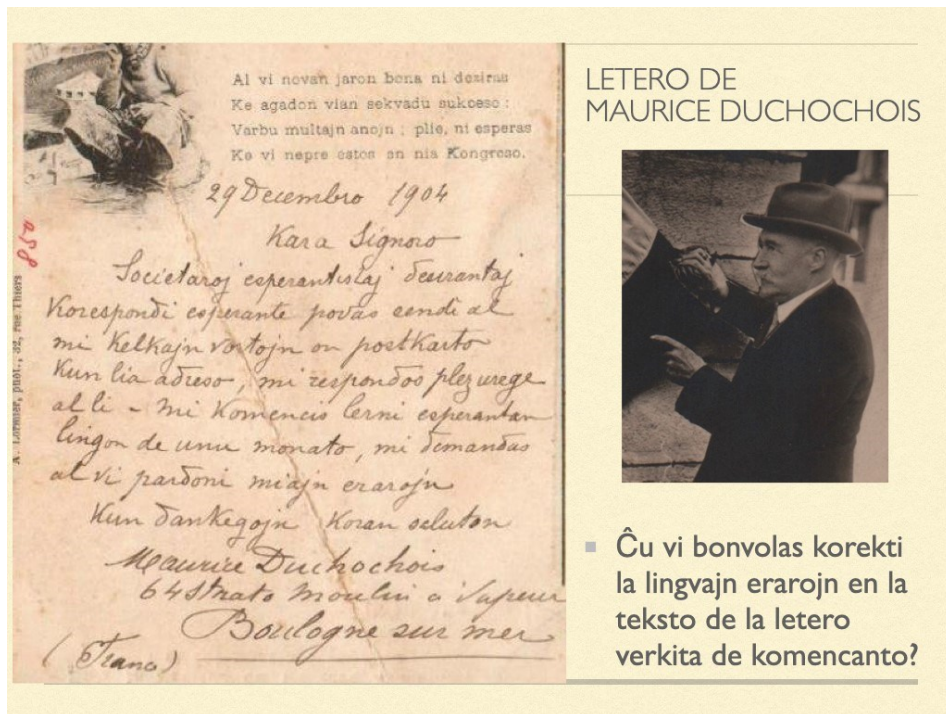 Al vi novan jaron bona ni deziras
Ke agadon vian sekvadu sukceso :
Varbu multajn anojn ; plie, ni esperas
Ke vi nepre estos en nia Kongreso.
29 Decembro 1904
Kara Signoro
Societaroj esperantistaj desirantaj
Korespondi esperante povas sendi al
mi kelkajn vortojn on postkarto
Kun lia adreso, mi respondos plezurege
al li - mi komencis lerni esperantan
lingon de unu monato, mi demandas
al vi pardoni miajn erarojn
Kun dankegojn koran saluton
Maurice Duchochois
64 Strato Moulin a Vapeur
Boulogne sur mer
(Franc)
a58
A. Lormier, phot., 32, rue Thiers
LETERO DE
MAURICE DUCHOCHOIS
Ĉu vi bonvolas korekti
la lingvajn erarojn en la
teksto de la letero
verkita de komencanto?